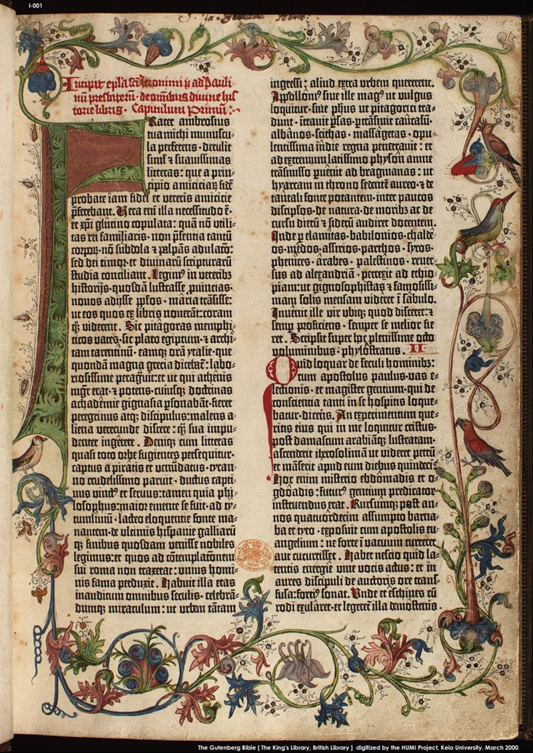 I-001
Incipit epistola sancti iheronimi ad pauli
num presbiterum de omnibus diuine his
torie libris. Capitulum Primum.
Frater ambrosius
tua michi munuscu
la perferens · detulit
simł et suauissimas
litteras · que a prin
cipio amiciciarū · fidē
probate iam fidei et veteris amicicie
pferebant. Uera enī illa necessitudo ē ·
et xp̄i glutino copulata : quā nō utili-
tas rei familiaris · nō presentia tantū
corporū · nō subdola et palpās adulacio ·
sed dei timor · et diuinarū scripturarū
studia conciliant. Legimus in veteribȝ
historijs · quosdā lustrasse prouincias ·
nouos adijsse pplos · maria trāsisse ·
ut eos quos ex libris nouerāt : coram
qȝ viderent. Sic pitagoras memphi-
ticos vates · sic plato egiptum · et archi-
tam tarentinū · eamqȝ orā ytalie · que
quondā magna grecia dicebat̄ : labo-
riosissime peragrauit : et ut qui athenis
mgr̄ erat · et potens · cuiusqȝ doctrinas
achademie gignasia psonabāt · fieret
peregrinus atqȝ discipulus : malens a-
liena verecunde discere : qȝ sua impu-
denter ingerere. Deniqȝ cum litteras
quasi toto orbe fugientes persequitur ·
captus a piratis et venūdatus · tyran-
no crudelissimo paruit · ductus capti-
uus vinctus et seruus : tamen quia phi-
losophus · maior emente se fuit · ad ty-
tumliuiū · lacteo eloquentie fonte ma-
nantem · de ultimis hispanie galliarūqȝ
finibus quosdam venisse nobiles
legimus : et quos ad cōtemplacionem
sui roma non traxerat : unius homi-
nis fama perduxit. Habuit illa etas
inauditum omnibus seculis · celebrā-
dumqȝ miraculum : ut urbem tātam
ingressi : aliud extra urbem quererent.
Apolloniꝰ siue ille magꝰ ut vulgus
loquitur · siue phūs ut pitagorici tra-
dunt · intrauit psas · ptrāsiuit caucasū ·
albanos · scithas · massagetas · opu-
lentissima indie regna penetrauit : et
ad extremum latissimo physon amne
trāsmisso puenit ad bragmanas : ut
hyarcam in throno sedentē aureo · et de
tantali fonte potantem · inter paucos
discipulos · de natura · de moribȝ ac de
cursu dierū et siderū audiret docentem.
Inde p elamitas · babilonios · chalde-
os · medos · assirios · parthos · syros ·
phenices · arabes · palestinos · reuer-
sus ad alexandriā · perrexit ad ethio-
piam : ut gignosophistas et famosissi-
mam solis mensam videret ī sabulo.
Inuenit ille vir ubiqȝ quod disceret : et
semp proficiens · semper se melior fie-
ret. Scripsit super hoc plenissime octo
voluminibus · phylostratus. II
Quid loquar de seculi hominibȝ :
cum apostolus paulus · vas e-
lectionis · et magister gentium · qui de
conscientia tanti in se hospitis loque-
batur · dicens. An experimentum que-
ritis eius qui in me loquitur cristus.
post damascum arabiāqȝ lustratam ·
ascenderit iherosolimā ut videret petrū
et māserit apud eum diebus quindeci.
Hoc enim misterio ebdomadis et o-
gdoadis : futurꝰ gentium predicator
instruendus erat. Rursumqȝ post an-
nos quatuordecim assumpto barna-
ba et tyto · exposuit cum apostolis eu-
angelium : ne forte ī vacuum curreret
aut cucurrisset. Habet nescio quid la-
tentis energie viue vocis actus : et in
aures discipuli de auctoris ore trans-
fusa : forciꝰ sonat. Unde et eschines cū
rodi exularet · et legeret̄ illa demostenis
The Gutenberg Bible [ The King's Library, British Library ] digitized by the HUMI Project, Keio University, March 2000